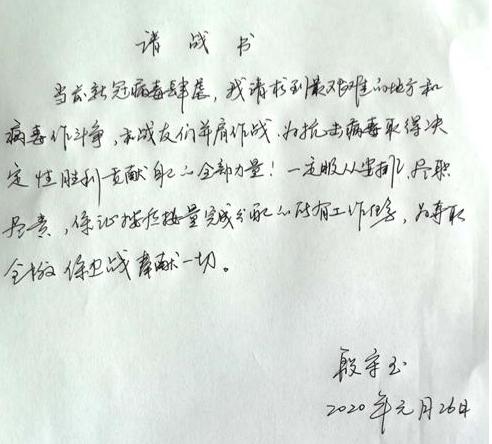 请战书
当前新冠病毒肆虐，我请求到最艰难的地方和
病毒作斗争，和战友们并肩作战，为抗击病毒取得决
定性胜利贡献自己的全部力量！一定服从安排，尽职
尽责，保证按质按量完成分配的所有工作任务，为夺取
全 保卫战奉献一切。
殷守玉
2020年元月26日